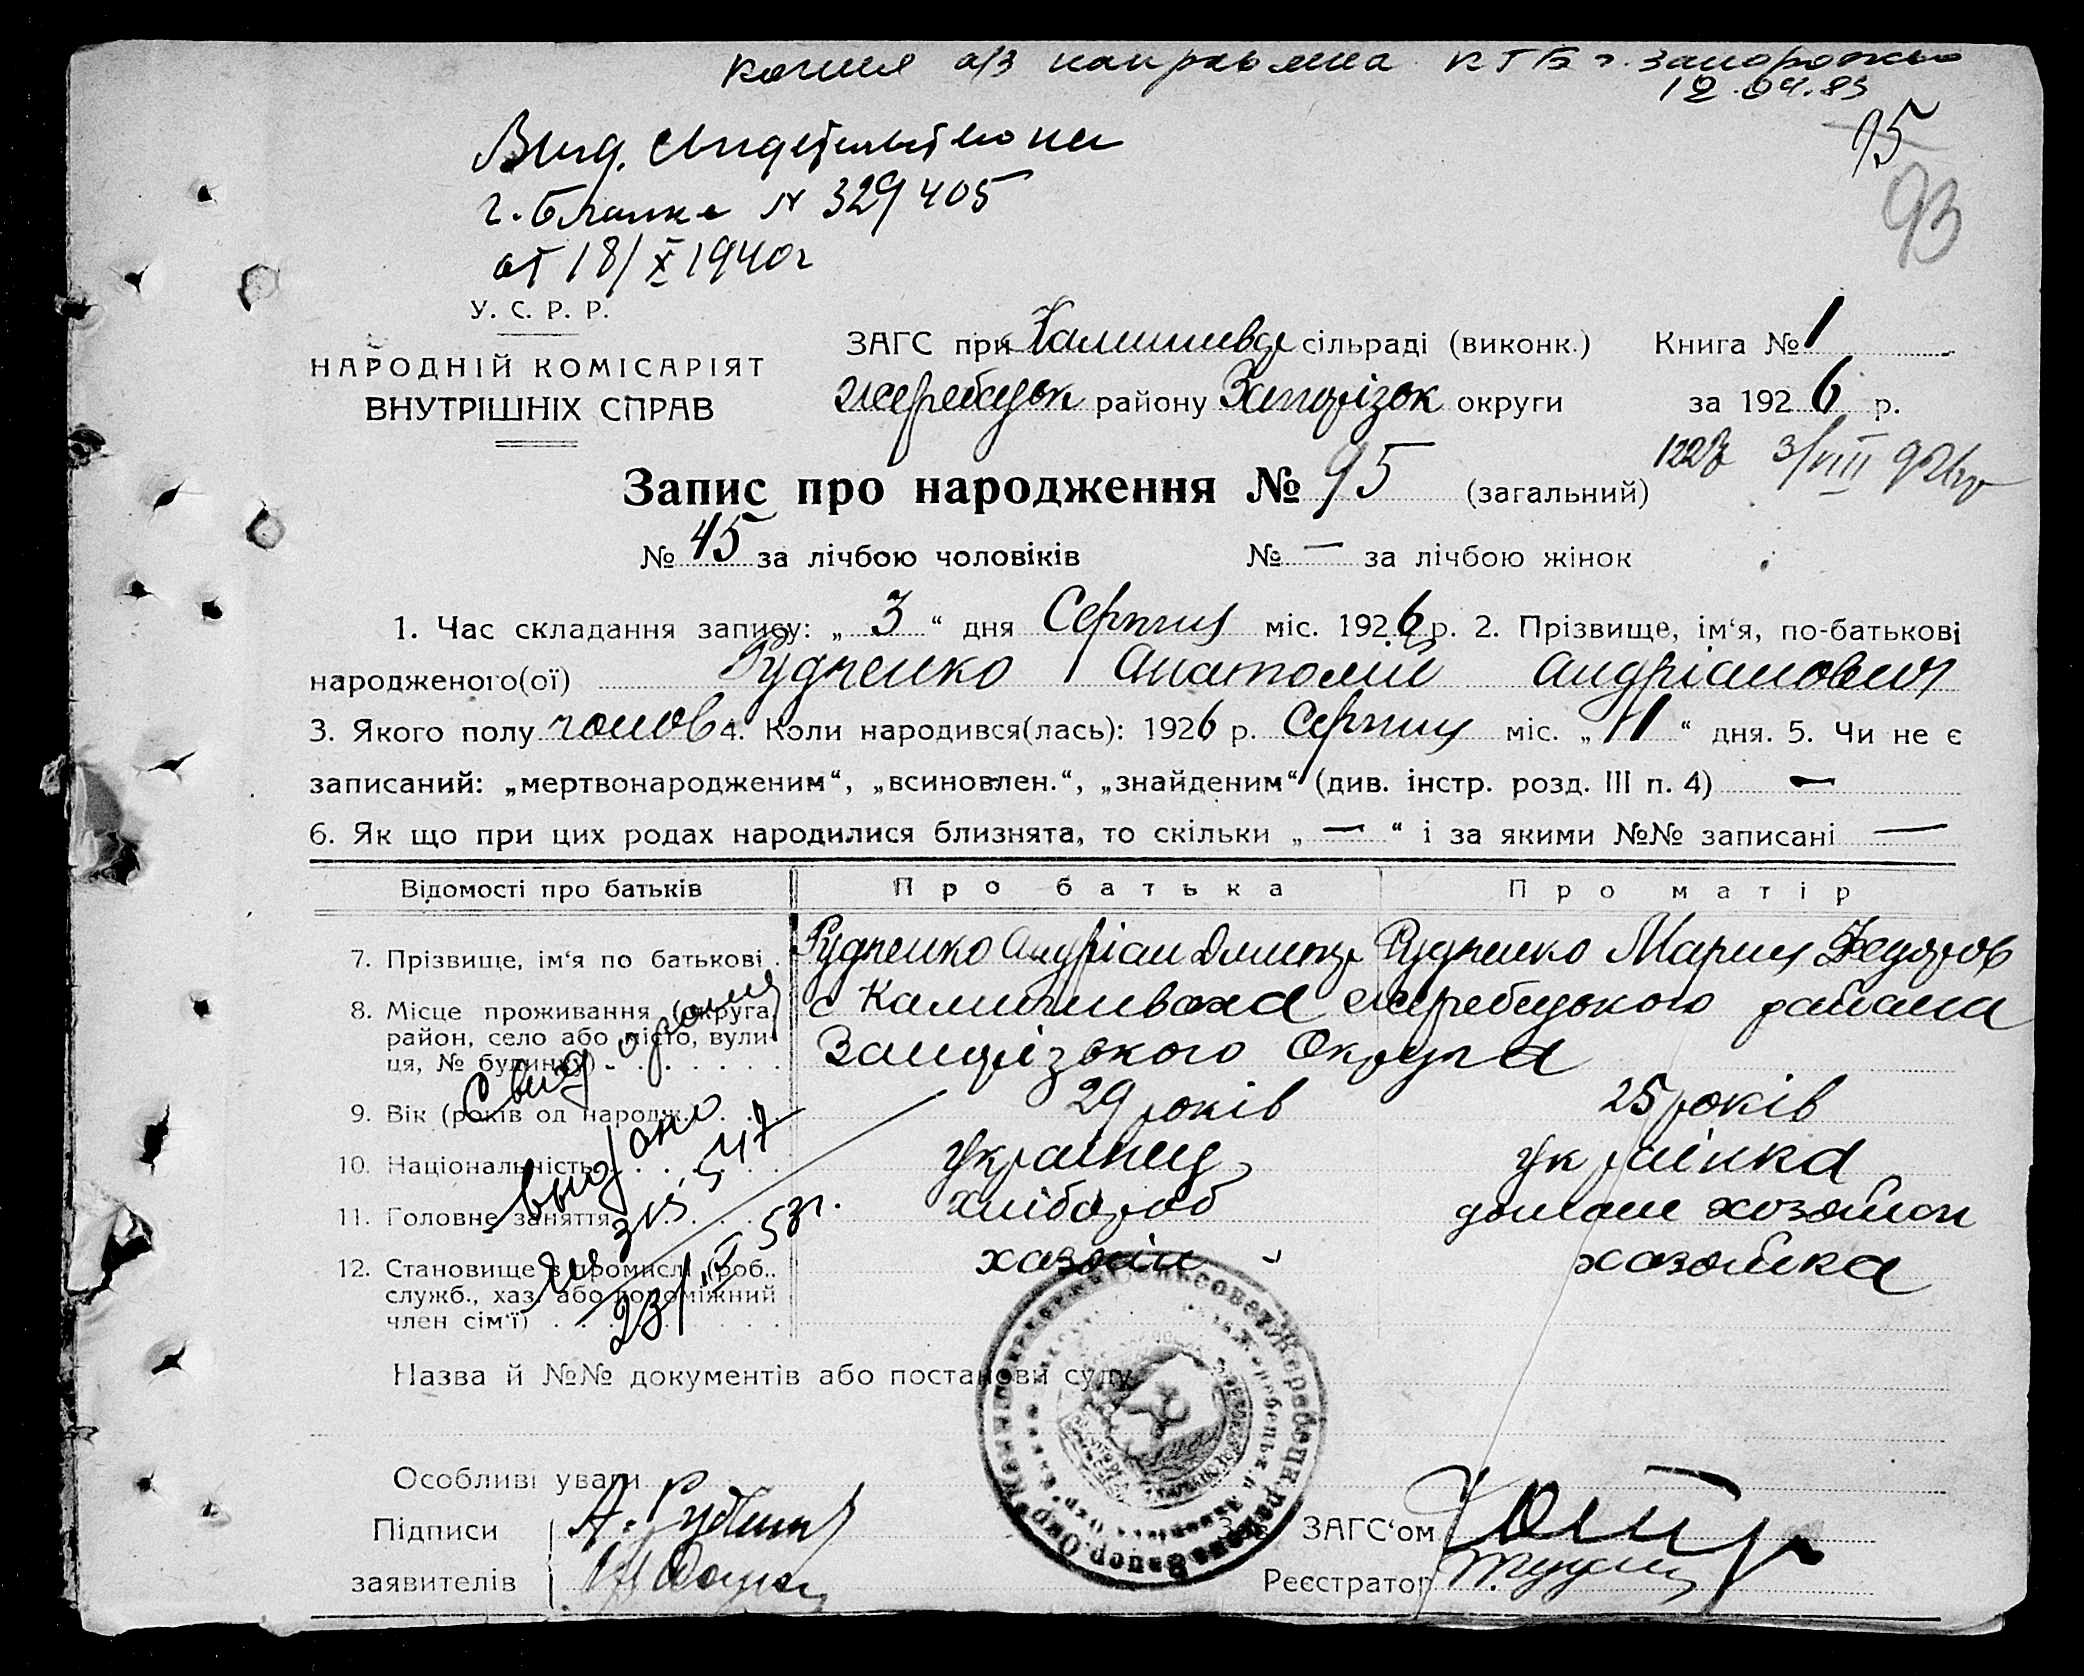 копия а/з направлена КГБ г. Запорожье
12.04.83
95
Выд. Свидетельство на
93
г. бланке № 329405
от 18/X 1940 г
У. С. Р. Р.
НАРОДНІЙ КОМІСАРІЯТ
ВНУТРІШНІХ СПРАВ
ЗАГС при сільраді (виконк.) Книга № 1
Жеребецьк району Запорізьк округи за 1926 р.
3/VIII 926 р
Запис про народження № 95 (загальний)
№ 45 за лічбою чоловіків № — за лічбою жінок
1. Час складання запису: „ 3 “ дня Серпня міс. 1926 р. 2. Прізвище, ім‘я, по-батькові
народженого(ої) Рудченко Анатолій Андріанович
3. Якого полу чолов 4. Коли народився(лась): 1926 р. Серпня міс. „ 1 “ дня. 5. Чи не є
записаний: „мертвонародженим“, „всиновлен.“, „знайденим“ (див. інстр. розд. III п. 4) —
6. Як що при цих родах народилися близнята, то скільки „ — “ і за якими №№ записані —
Відомості про батьків Про батька Про матір
7. Прізвище, ім‘я по батькові . Рудченко Андріан Дмитр Рудченко Мария Федоров
8. Місце проживання (округа, с Камишеваха Жеребецького района
район, село або місто, вули-
ця, № будинку) Запорізького Округа
9. Вік (років од народж.) 29 років 25 років
10. Національність українец українка
11. Головне заняття хлібороб домаш хозяйсн
12. Становище в промислі (роб.. хазяїн хозяйка
служб., хаз. або допоміжний
член сім‘ї)
Свид. о рожд
выдано
23/
53г.
Назва й №№ документів або постанови суду
Особливі уваги
Підписи А. Рудченко Зав. ЗАГС‘ом
заявителів Реєстратор